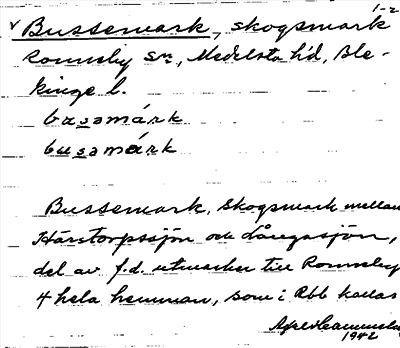 1-2
v Bussemark, skogsmark
Ronneby sn, Medelsta hd, Ble-
kinge l.
busamárk
busamárk
Bussemark, skogsmark mellan
Härstorpssjön och Långasjön,
del av f.d. utmarken till Ronneby
4 hela hemman, som i Rbl kallas
1942